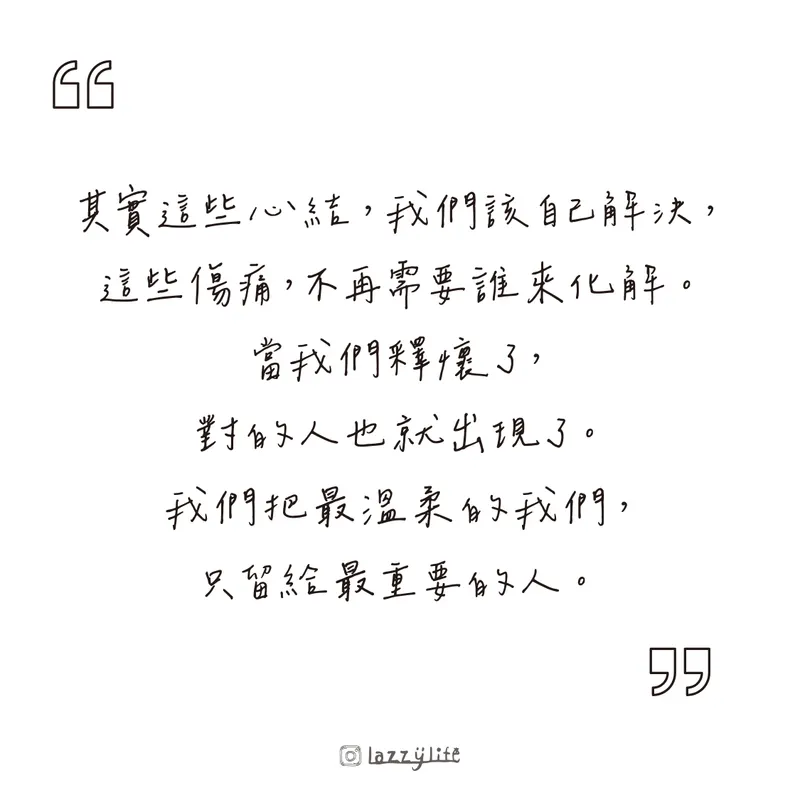 其實這些心結，我們該自己解決，
這些傷痛，不再需要誰來化解。
當我們釋懷了，
對的人也就出現了。
我們把最溫柔的我們，
只留給最重要的人。
lazzylife